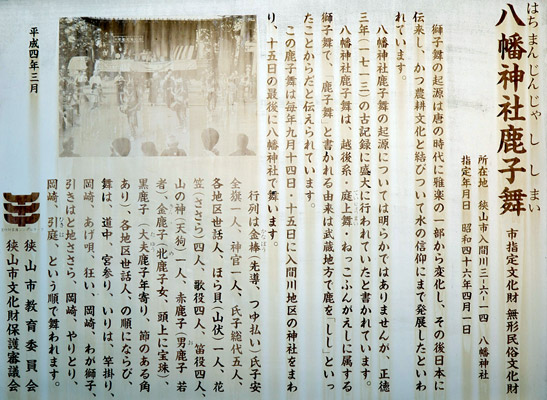 はちまんじんじゃししまい
八幡神社鹿子舞
市指定文化財 無形民俗文化財
所在地 狭山市入間川三-六-一四 八幡神社
指定年月日 昭和四十六年四月一日
獅子舞の起源は唐の時代に雅楽の一部から変化し、その後日本に
伝来し、かつ農耕文化と結びついて水の信仰にまで発展したといわ
れています。
八幡神社鹿子舞の起源については明らかではありませんが、正徳
三年(一七一三)の古記録に盛大に行われていたと書かれています。
八幡神社鹿子舞は、越後系・庭上舞・ねっこふんがえしに属する
獅子舞で、「鹿子舞」と書かれる由来は武蔵地方で鹿を「しし」といっ
たことからだと伝えられています。
この鹿子舞は毎年九月十四日・十五日に入間川地区の神社をまわ
り、十五日の最後に八幡神社で舞います。
行列は金棒(先導、つゆ払い)氏子安
全旗一人、神官一人、氏子総代五人、
各地区世話人、ほら貝(山伏)一人、花
笠(ささら)四人、歌役四人、笛役四人、
山の神(天狗)一人、赤鹿子(男鹿子 若
者)、金鹿子(北鹿子女、頭上に宝珠)、
黒鹿子(大夫鹿子年寄り、節のある角
あり)、各地区世話人、の順にならび、
舞は、道中、宮参り、いりは、竿掛り、
岡崎、あげ唄、狂い、岡崎、わが獅子、
引きは久地ささら、岡崎、やりとり、
岡崎、引庭、という順で舞われます。
狭山市教育委員会
狭山市文化財保護審議会
平成四年三月